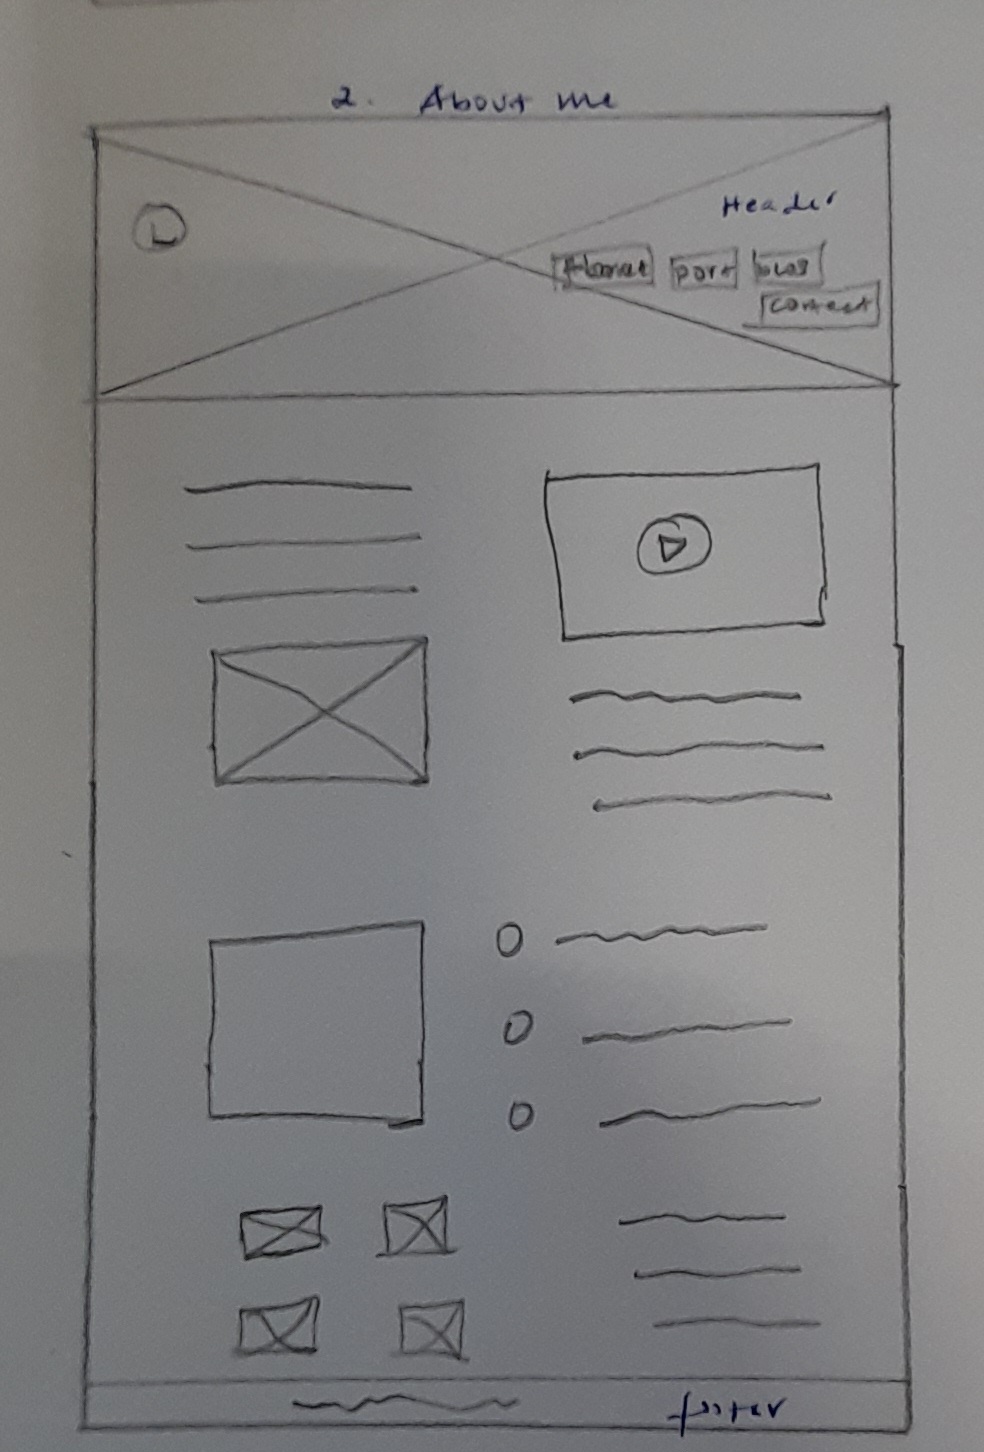 2. About me
Header
L
About port blog
contact
footer